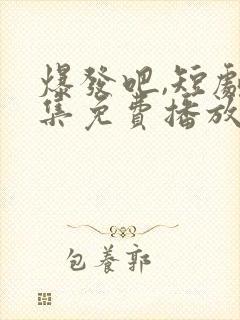 爆發吧,短劇
集免費播放
包養郭